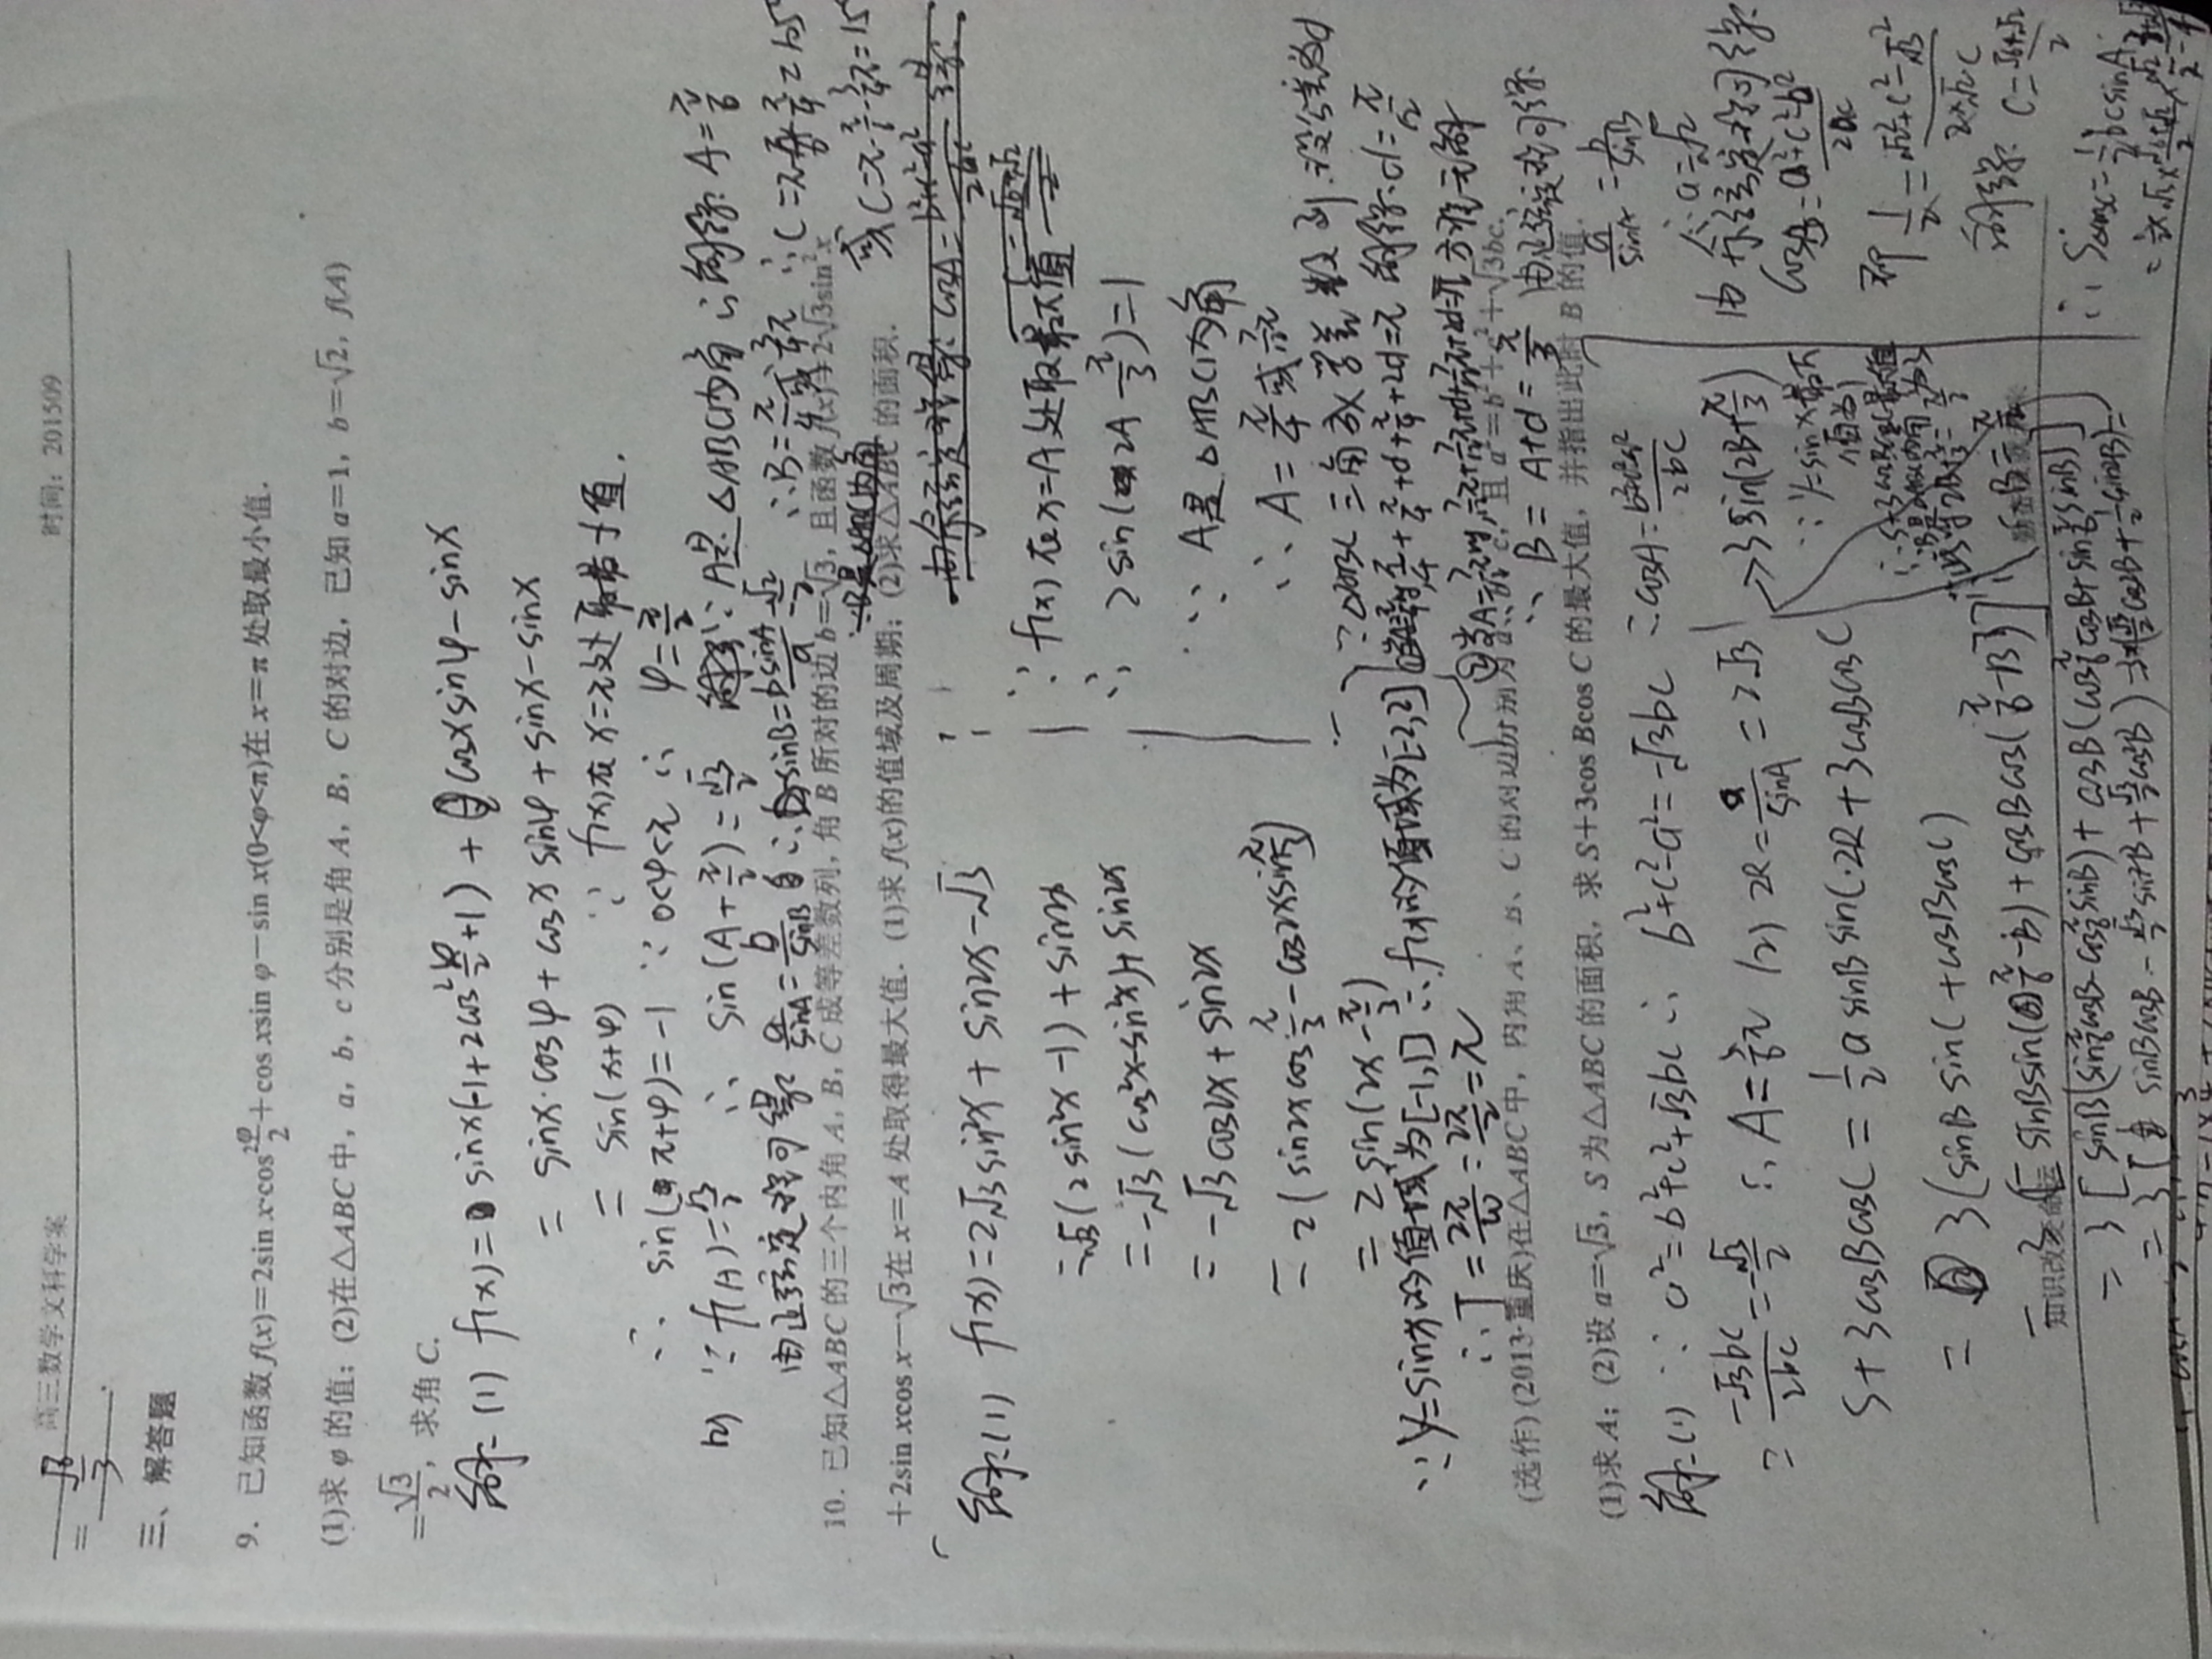 高三数学文科学案 时间：201509
= √6/3
三、解答题
9．已知函数 f(x)=2sin x·cos²φ/2+cos xsin φ－sin x(0<φ<π)在 x=π 处取最小值．
(1)求 φ 的值；(2)在△ABC 中，a，b，c 分别是角 A，B，C 的对边，已知 a=1，b=√2，f(A)
=√3/2，求角 C.
解：(1) f(x)= sinx(-1+2cos²φ/2+1) + cosxsinφ-sinx
= sinx·cosφ+cosx sinφ+sinx-sinx
= sin(x+φ) ∵ f(x)在x=π处取最小值.
∴ sin(π+φ)=-1 ∵ 0<φ<π ∴ φ=π/2
(2) ∵ f(A)=√3/2 ∴ sin(A+π/2)=√3/2 ∵ A是△ABC内角 ∴解得: A=π/6
由正弦定理可得: a/sinA=b/sinB ∴ sinB=bsinA/a=√2/2 ∴B=π/4或3/4π ∴C=π-π/6-π/4=105°
或C=π-π/6-3/4π=15°
10．已知△ABC 的三个内角 A，B，C 成等差数列，角 B 所对的边 b=√3，且函数 f(x)=2√3sin²x
∵B是△ABC内角
+2sin xcos x－√3在 x=A 处取得最大值．(1)求 f(x)的值域及周期；(2)求△ABC 的面积．
由余弦定理得: cosA=b²+c²-a²/2bc
解:(1) f(x)=2√3sin²x+sin2x-√3
=√3(2sin²x-1)+sin2x
=-√3(cos²x-sin²x)+sin2x
=-√3cos2x+sin2x
=2(sin2xcosπ/3-cos2xsinπ/3)
=2sin(2x-π/3)
∵y=sinx的值域为[-1,1] ∴f(x)的值域为[-2,2]
∴T=2π/ω=2π/2=π
∵ f(x)在x=A处取最大值
∴ 2sin(2A-π/3)=1
∵ A是△ABC内角
∴ A=π/4或7/12π
∵△ABC三角成等差数列.设公差为d
①当A=π/4时,π/4+π/4+d+π/4+2d=π 解得:d=π/12
②当A=7/12π时,7/12π+7/12π+d+7/12π+2d=π 方程无解
∴ B=A+d=π/3 由正弦定理可得:
a/sinA=b/sinB
∴a=√2
由余弦定理可得:
cosB=a²+c²-b²/2ac
即 1/2=√2²+c²-√3²/2×√2·c
解得: c=√6+√2/2
∴ S△ABC=1/2bcsinA
=1/2×√3×√6+√2/2×√2/2=3+√3/4
(选作) (2013·重庆)在△ABC 中，内角 A、B、C 的对边分别为 a、b、c，且 a²=b²+c²+√3bc.
(1)求 A；(2)设 a=√3，S 为△ABC 的面积，求 S+3cos Bcos C 的最大值，并指出此时 B 的值．
解:(1) ∵ a²=b²+c²+√3bc ∴ b²+c²-a²=-√3bc ∴cosA=b²+c²-a²/2bc
=-√3bc/2bc=-√3/2 ∴A=5/6π (2) 2R=a/sinA=2√3
S+3cosBcosC=1/2asinBsinC·2R+3cosBcosC
= 3(sinBsinC+cosBcosC)
= 3[sinBsin(π/6-B)+cosBcos(π/6-B)]
= 3[sinB(sinπ/6cosB-cosπ/6sinB)+cosB(cosπ/6cosB+sinπ/6sinB)]
= 3[sinBcosB-√3/2sin²B+√3/2cos²B)=3×(√3/2cos2B+1/2sin2B)=
3sin(2B+π/3)
∵y=sinx最大
值为1
∴S+3cosBcosC最大值
为3
∵B是△ABC内角
此时2B+π/3=π/2
∴B=π/12
知识改变命运